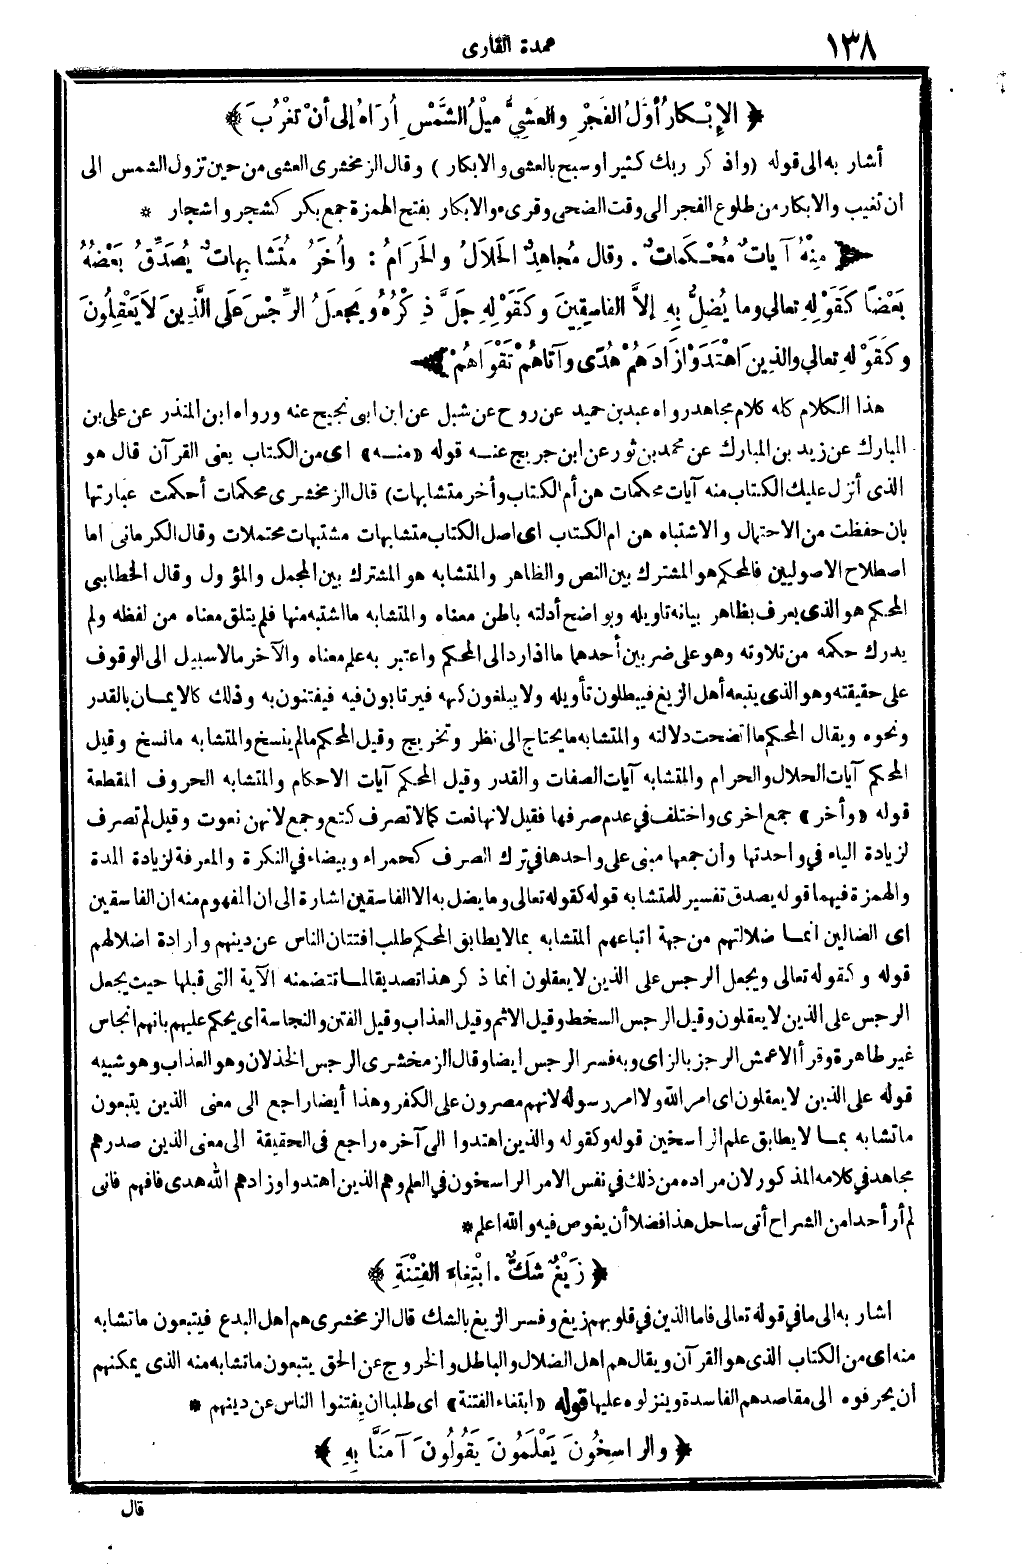 عمدة القارى ١٣٨
﴿ الإِبْكَارُ أوَّلُ الفَجْرِ والعَشِيُّ مَيْلُ الشَّمْسِ أُرَاهُ إلى أنْ تَغْرُبَ ﴾
أشار به الى قوله (واذكر ربك كثيرا وسبح بالعشى والابكار) وقال الزمخشرى العشى من حين تزول الشمس الى
ان تغيب والابكار من طلوع الفجر الى وقت الضحى وقرىء والابكار بفتح الهمزة جمع بكر كشجر واشجار *
﴿ مِنْهُ آياتٌ مُحْكَماتٌ . وقال مُجاهِدٌ الحَلَالُ والحَرَامُ : وأُخَرُ مُتَشَابِهاتٌ يُصَدِّقُ بَعْضُهُ
بَعْضًا كَقَوْلِهِ تعالى وما يُضِلُّ بِهِ إلاَّ الفاسِقِينَ وكَقَوْلِهِ جَلَّ ذِكْرُهُ ويَجعَلُ الرِّجْسَ عَلَى الَّذِينَ لاَ يَعْقِلُونَ
وكَقَوْلِهِ تعالى والذِينَ اهْتَدَوْا زَادَهُمْ هُدًى وآتاهُمْ تَقْوَاهُمْ ﴾
هذا الكلام كله كلام مجاهد رواه عبد بن حميد عن روح عن شبل عن ابن ابى نجيح عنه ورواه ابن المنذر عن على بن
المبارك عن زيد بن المبارك عن محمد بن ثور عن ابن جريج عنه قوله «منه» اى من الكتاب يعنى القرآن قال هو
الذى أنزل عليك الكتاب منه آيات محكمات هن أم الكتاب وأخر متشابهات) قال الزمخشرى محكمات أحكمت عبارتها
بان حفظت من الاحتمال والاشتباه هن ام الكتاب اى اصل الكتاب متشابهات مشتبهات محتملات وقال الكرمانى اما
اصطلاح الاصوليين فالمحكم هو المشترك بين النص والظاهر والمتشابه هو المشترك بين المجمل والمؤول وقال الخطابى
المحكم هو الذى يعرف بظاهر بيانه تاويله وبواضح أدلته باطن معناه والمتشابه ما اشتبه منها فلم يتلق معناه من لفظه ولم
يدرك حكمه من تلاوته وهو على ضربين أحدهما ما اذا رد الى المحكم واعتبر به علم معناه والآخر ما لا سبيل الى الوقوف
على حقيقته وهو الذى يتبعه أهل الزيغ فيبطلون تأويله ولا يبلغون كنهه فيرتابون فيه فيفتنون به وذلك كالايمان بالقدر
ونحوه ويقال المحكم ما اتضحت دلالته والمتشابه ما يحتاج الى نظر وتخريج وقيل المحكم ما لم ينسخ والمتشابه ما نسخ وقيل
المحكم آيات الحلال والحرام والمتشابه آيات الصفات والقدر وقيل المحكم آيات الاحكام والمتشابه الحروف المقطعة
قوله «وأخر» جمع اخرى واختلف في عدم صرفها فقيل لانها نعت كما لا تصرف كتع وجمع لانهن نعوت وقيل لم تصرف
لزيادة الياء في واحدتها وان جمعها مبنى على واحدها في ترك الصرف كحمراء وبيضاء في النكرة والمعرفة لزيادة المدة
والهمزة فيهما قوله يصدق تفسير للمتشابه قوله كقوله تعالى وما يضل به الا الفاسقين اشارة الى ان المفهوم منه ان الفاسقين
اى الضالين انما ضلالتهم من جهة اتباعهم المتشابه بما لا يطابق المحكم طلب افتتان الناس عن دينهم وارادة اضلالهم
قوله وكقوله تعالى ويجعل الرجس على الذين لا يعقلون انما ذكر هذا تصديقا لما تتضمنه الآية التى قبلها حيث يجعل
الرجس على الذين لا يعقلون وقيل الرجس السخط وقيل الاثم وقيل العذاب وقيل الفتن والنجاسة اى يحكم عليهم بانهم انجاس
غير طاهرة وقرأ الاعمش الرجز بالزاى وبه فسر الرجس ايضا وقال الزمخشرى الرجس الخذلان وهو العذاب وهو شبيه
قوله على الذين لا يعقلون اى امر الله ولا امر رسوله لانهم مصرون على الكفر وهذا أيضا راجع الى معنى الذين يتبعون
ما تشابه بما لا يطابق علم الراسخين قوله وكقوله والذين اهتدوا الى آخره راجع فى الحقيقة الى معنى الذين صدرهم
مجاهد في كلامه المذكور لان مراده من ذلك في نفس الامر الراسخون في العلم وهم الذين اهتدوا وزادهم الله هدى فافهم فانى
لم أر أحدا من الشراح أتى ساحل هذا فضلا أن يغوص فيه والله اعلم *
﴿ زَيْغٌ شَكٌّ . ابْتِغاءَ الفِتْنَةِ ﴾
اشار به الى ما في قوله تعالى فاما الذين في قلوبهم زيغ وفسر الزيغ بالشك قال الزمخشرى هم اهل البدع فيتبعون ما تشابه
منه اى من الكتاب الذى هو القرآن ويقال هم اهل الضلال والباطل والخروج عن الحق يتبعون ما تشابه منه الذى يمكنهم
أن يحرفوه الى مقاصدهم الفاسدة وينزلوه عليها قوله «ابتغاء الفتنة» اى طلبا ان يفتنوا الناس عن دينهم *
﴿ والرَّاسِخُونَ يَعْلَمُونَ يَقُولُونَ آمَنَّا بِهِ ﴾
قال